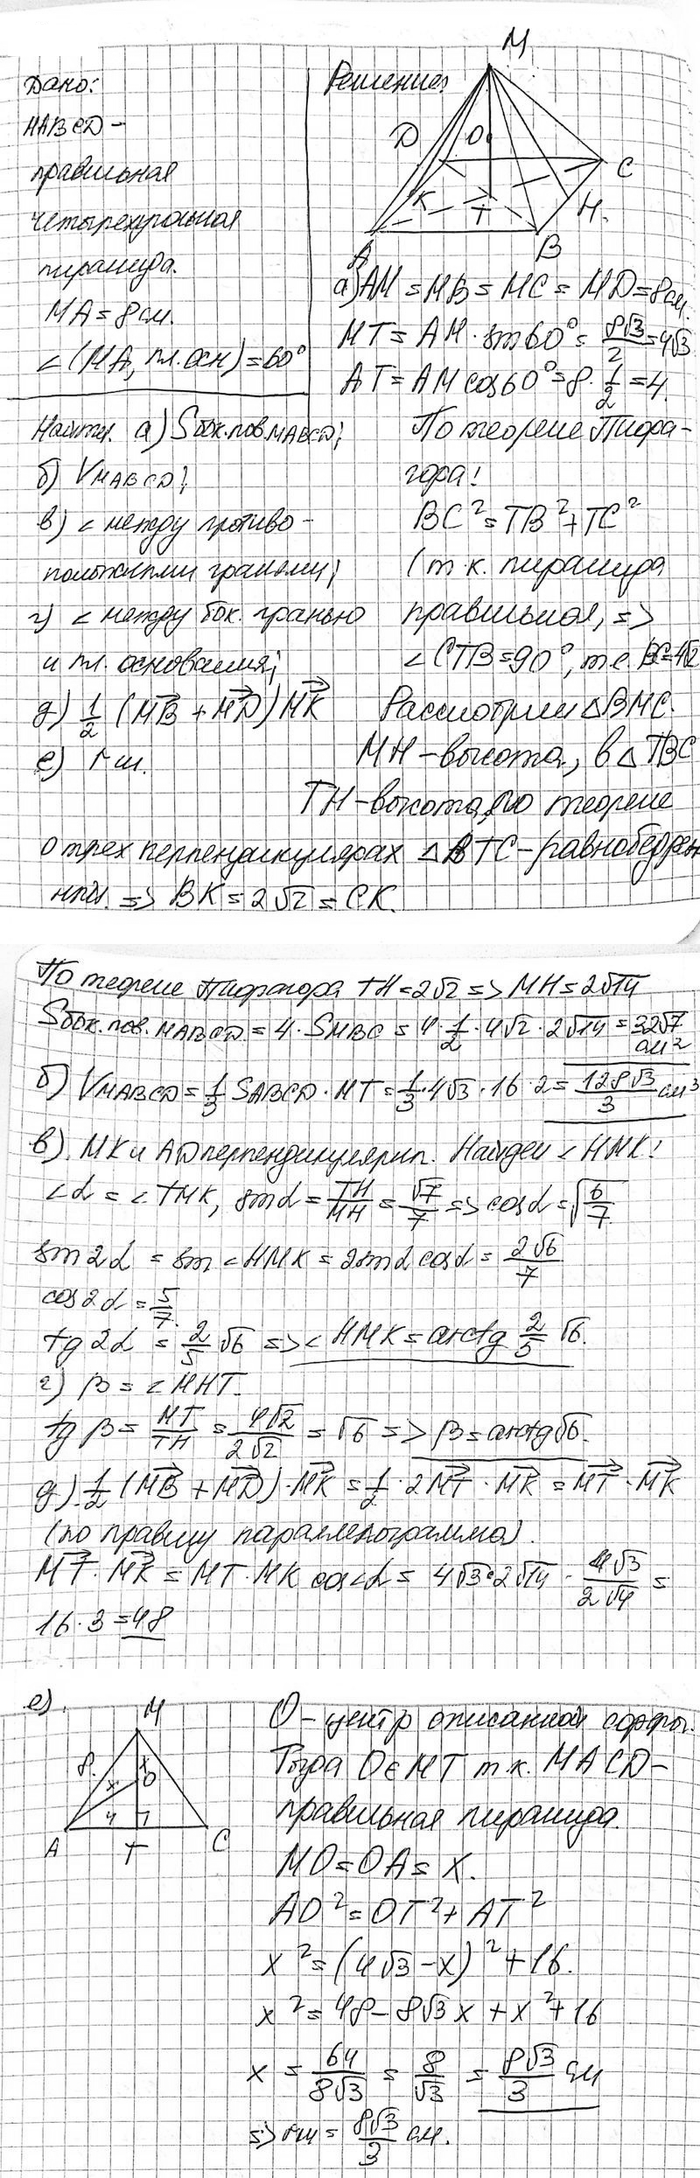 Дано:
MABCD -
правильная
четырехугольная
пирамида.
MA = 8 см.
∠(MA, пл. осн) = 60°
Найти: а) Sбок.пов.MABCD;
б) VMABCD;
в) ∠ между противо-
положными гранями;
г) ∠ между бок. гранью
и пл. основания;
д) 1/2 (MB + MD) MK
е) rш.
Решение:
M
D
O
C
K
T
H
A
B
а) AM = MB = MC = MD = 8 см.
MT = AM · sin60° = 8√3/2 = 4√3
AT = AM cos60° = 8 · 1/2 = 4.
По теореме Пифа-
гора:
BC² = TB² + TC²
(т.к. пирамида
правильная, =>
∠CTB = 90°, т.е. BC = 4√2
Рассмотрим △BMC.
MH - высота, в △TBC
TH - высота, по теореме
о трех перпендикулярах △BTC - равнобедрен-
ный. => BK = 2√2 = CK.
По теореме Пифагора TH = 2√2 => MH = 2√14
Sбок.пов.MABCD = 4 · SMBC = 4 · 1/2 · 4√2 · 2√14 = 32√7
см²
б) VMABCD = 1/3 SABCD · MT = 1/3 · 4√3 · 16 · 2 = 128√3/3 см³
в) MK и AD перпендикулярны. Найдем ∠HMK:
∠α = ∠TMK, sinα = TH/MH = √7/7 => cosα = √6/7
sin2α = sin∠HMK = 2sinα cosα = 2√6/7
cos2α = 5/7.
tg2α = 2/5 √6 => ∠HMK = arctg 2/5 √6.
г) β = ∠MHT.
tgβ = MT/TH = 4√2/2√2 = √6 => β = arctg√6.
д) 1/2 (MB + MD) · MK = 1/2 · 2MT · MK = MT · MK
(по правилу параллелограмма).
MT · MK = MT · MK cos∠α = 4√3 · 2√14 · 4√3/2√14 =
16 · 3 = 48
е).
M
8
x
x
O
4
A
T
C
O - центр описанной сферы.
Тогда O ∈ MT т.к. MACD -
правильная пирамида.
MO = OA = x.
AO² = OT² + AT²
x² = (4√3 - x)² + 16.
x² = 48 - 8√3x + x² + 16
x = 64/8√3 = 8/√3 = 8√3/3 см
=> rш = 8√3/3 см.